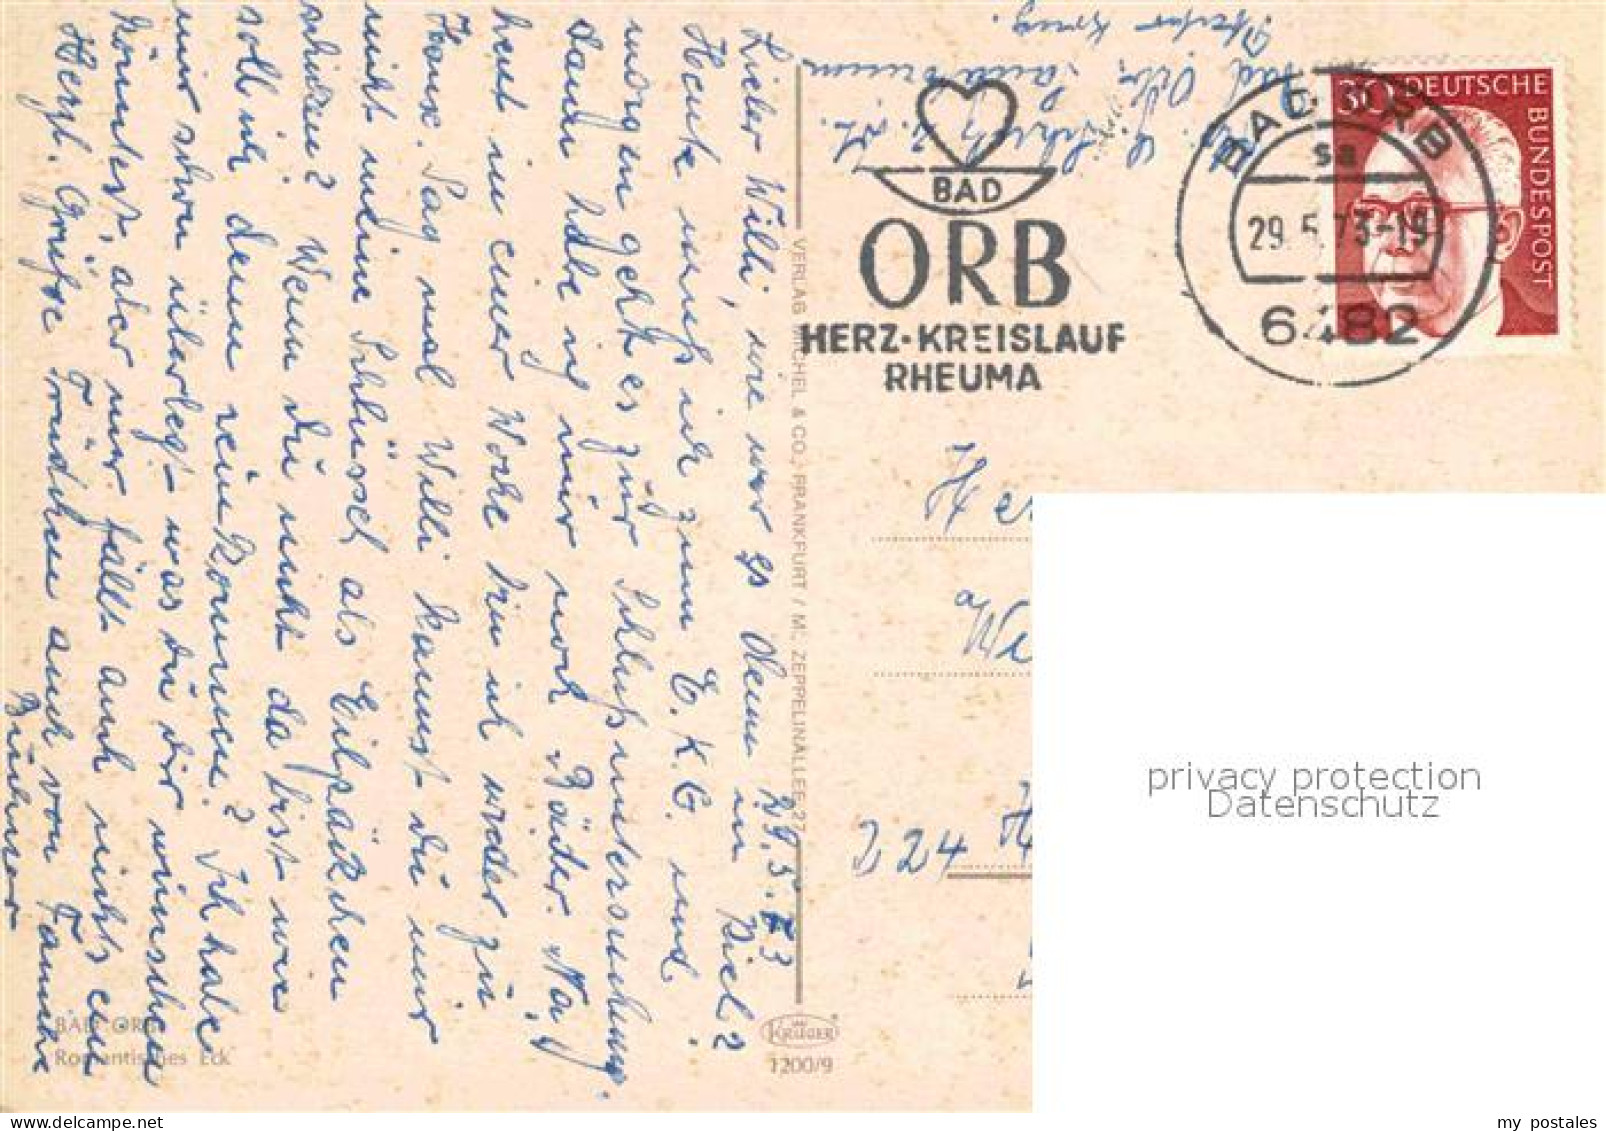 29.5.73
Lieber Willi, wie war es denn in Kiel?
Heute muß ich zum E.K.G. und
morgen geht es zur Schlußuntersuchung.
Dann habe ich nur noch Bäder. Na,
heut in einer Woche bin ich wieder zu
Hause. Sag mal Willi kannst du mir
nicht meine Schlüssel als Eilpäckchen
schicken? Wenn du nicht da bist wie
soll ich denn rein kommen? Ich habe
mir schon überlegt was du dir wünschen
könntest, aber mir fällt auch nichts ein
Herzl. Grüße Trudchen auch von Familie
Bad Orb
BAD
ORB
HERZ-KREISLAUF
RHEUMA
BAD ORB
sa
29.5.73-19
6482
30 DEUTSCHE
BUNDESPOST
VERLAG MICHEL & CO., FRANKFURT / M., ZEPPELINALLEE 27
D 24
privacy protection
Datenschutz
BAD ORB
Romantisches Eck
KRÜGER
1200/9
my postales